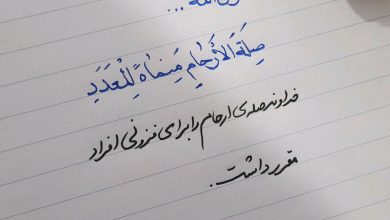 صِلَةَ الأَرْحَامِ مَنمَاةً لِلْعَدَدِ
خداوند صله‌ی ارحام را برای فزونی افراد
مقرر داشت.